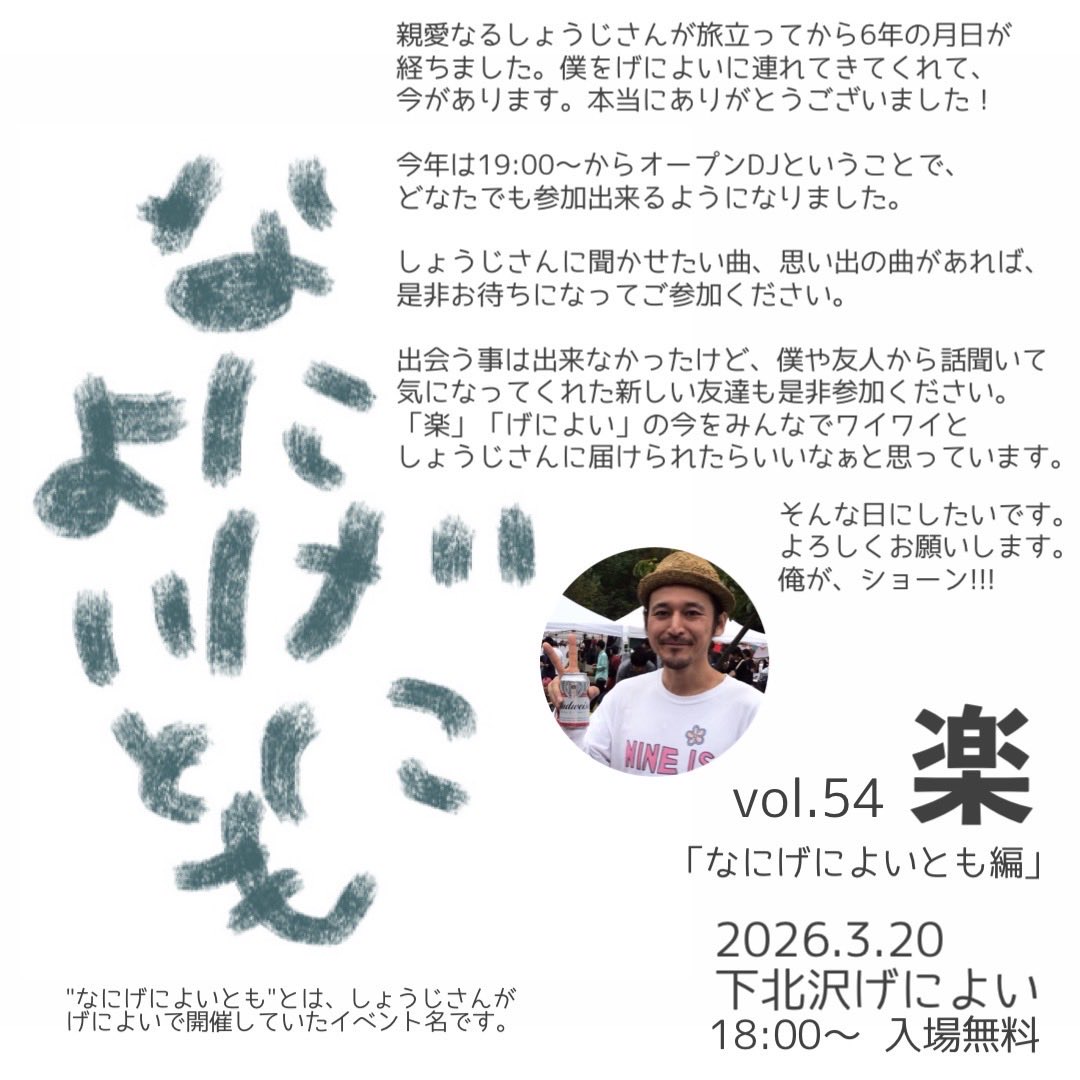 親愛なるしょうじさんが旅立ってから6年の月日が
経ちました。僕をげによいに連れてきてくれて、
今があります。本当にありがとうございました！
今年は19:00〜からオープンDJということで、
どなたでも参加出来るようになりました。
しょうじさんに聞かせたい曲、思い出の曲があれば、
是非お待ちになってご参加ください。
出会う事は出来なかったけど、僕や友人から話聞いて
気になってくれた新しい友達も是非参加ください。
「楽」「げによい」の今をみんなでワイワイと
しょうじさんに届けられたらいいなぁと思っています。
そんな日にしたいです。
よろしくお願いします。
俺が、ショーン!!!
なにげに
よいとも
Budweis
NINE IS
vol.54 楽
「なにげによいとも編」
2026.3.20
下北沢げによい
18:00〜 入場無料
"なにげによいとも"とは、しょうじさんが
げによいで開催していたイベント名です。